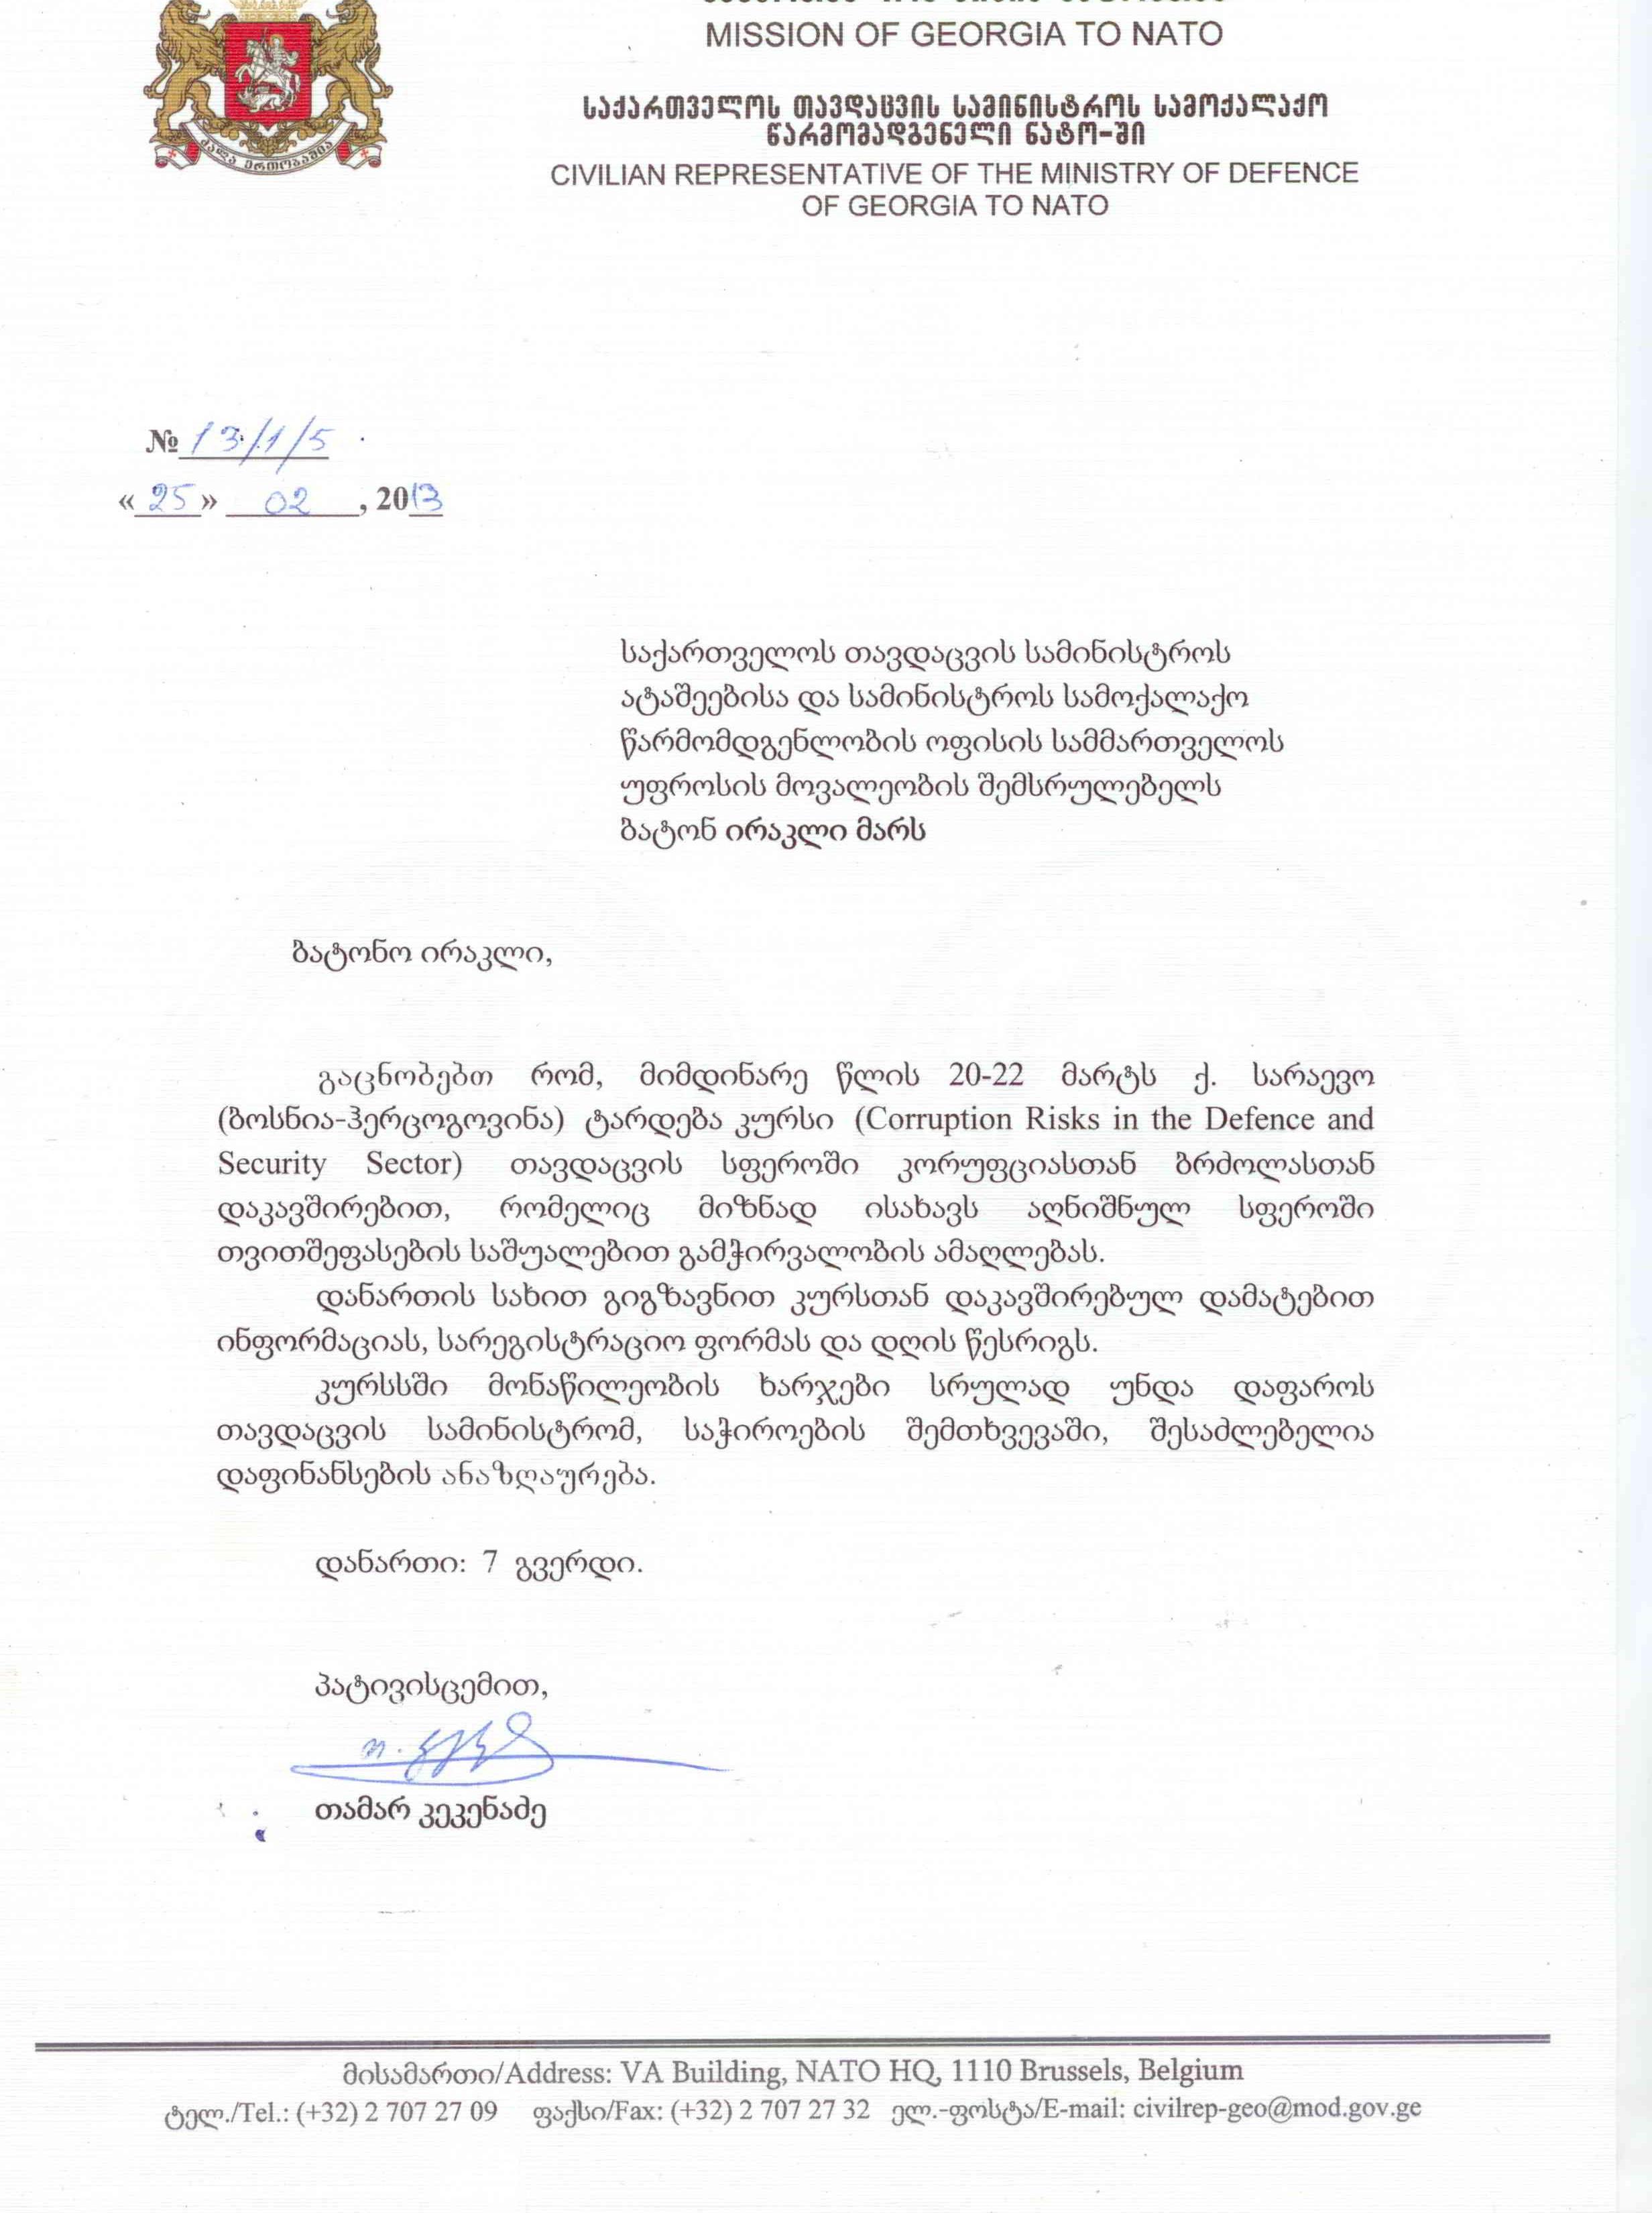 MISSION OF GEORGIA TO NATO
საქართველოს თავდაცვის სამინისტროს სამოქალაქო
წარმომადგენელი ნატო-ში
CIVILIAN REPRESENTATIVE OF THE MINISTRY OF DEFENCE
OF GEORGIA TO NATO
ძალა ერთობაშია
№ 13/1/5
« 25 » 02 , 2013
საქართველოს თავდაცვის სამინისტროს
ატაშეებისა და სამინისტროს სამოქალაქო
წარმომდგენლობის ოფისის სამმართველოს
უფროსის მოვალეობის შემსრულებელს
ბატონ ირაკლი მარს
ბატონო ირაკლი,
გაცნობებთ რომ, მიმდინარე წლის 20-22 მარტს ქ. სარაევო
(ბოსნია-ჰერცოგოვინა) ტარდება კურსი (Corruption Risks in the Defence and
Security Sector) თავდაცვის სფეროში კორუფციასთან ბრძოლასთან
დაკავშირებით, რომელიც მიზნად ისახავს აღნიშნულ სფეროში
თვითშეფასების საშუალებით გამჭირვალობის ამაღლებას.
დანართის სახით გიგზავნით კურსთან დაკავშირებულ დამატებით
ინფორმაციას, სარეგისტრაციო ფორმას და დღის წესრიგს.
კურსსში მონაწილეობის ხარჯები სრულად უნდა დაფაროს
თავდაცვის სამინისტრომ, საჭიროების შემთხვევაში, შესაძლებელია
დაფინანსების ანაზღაურება.
დანართი: 7 გვერდი.
პატივისცემით,
თამარ კეკენაძე
მისამართი/Address: VA Building, NATO HQ, 1110 Brussels, Belgium
ტელ./Tel.: (+32) 2 707 27 09 ფაქსი/Fax: (+32) 2 707 27 32 ელ.-ფოსტა/E-mail: civilrep-geo@mod.gov.ge